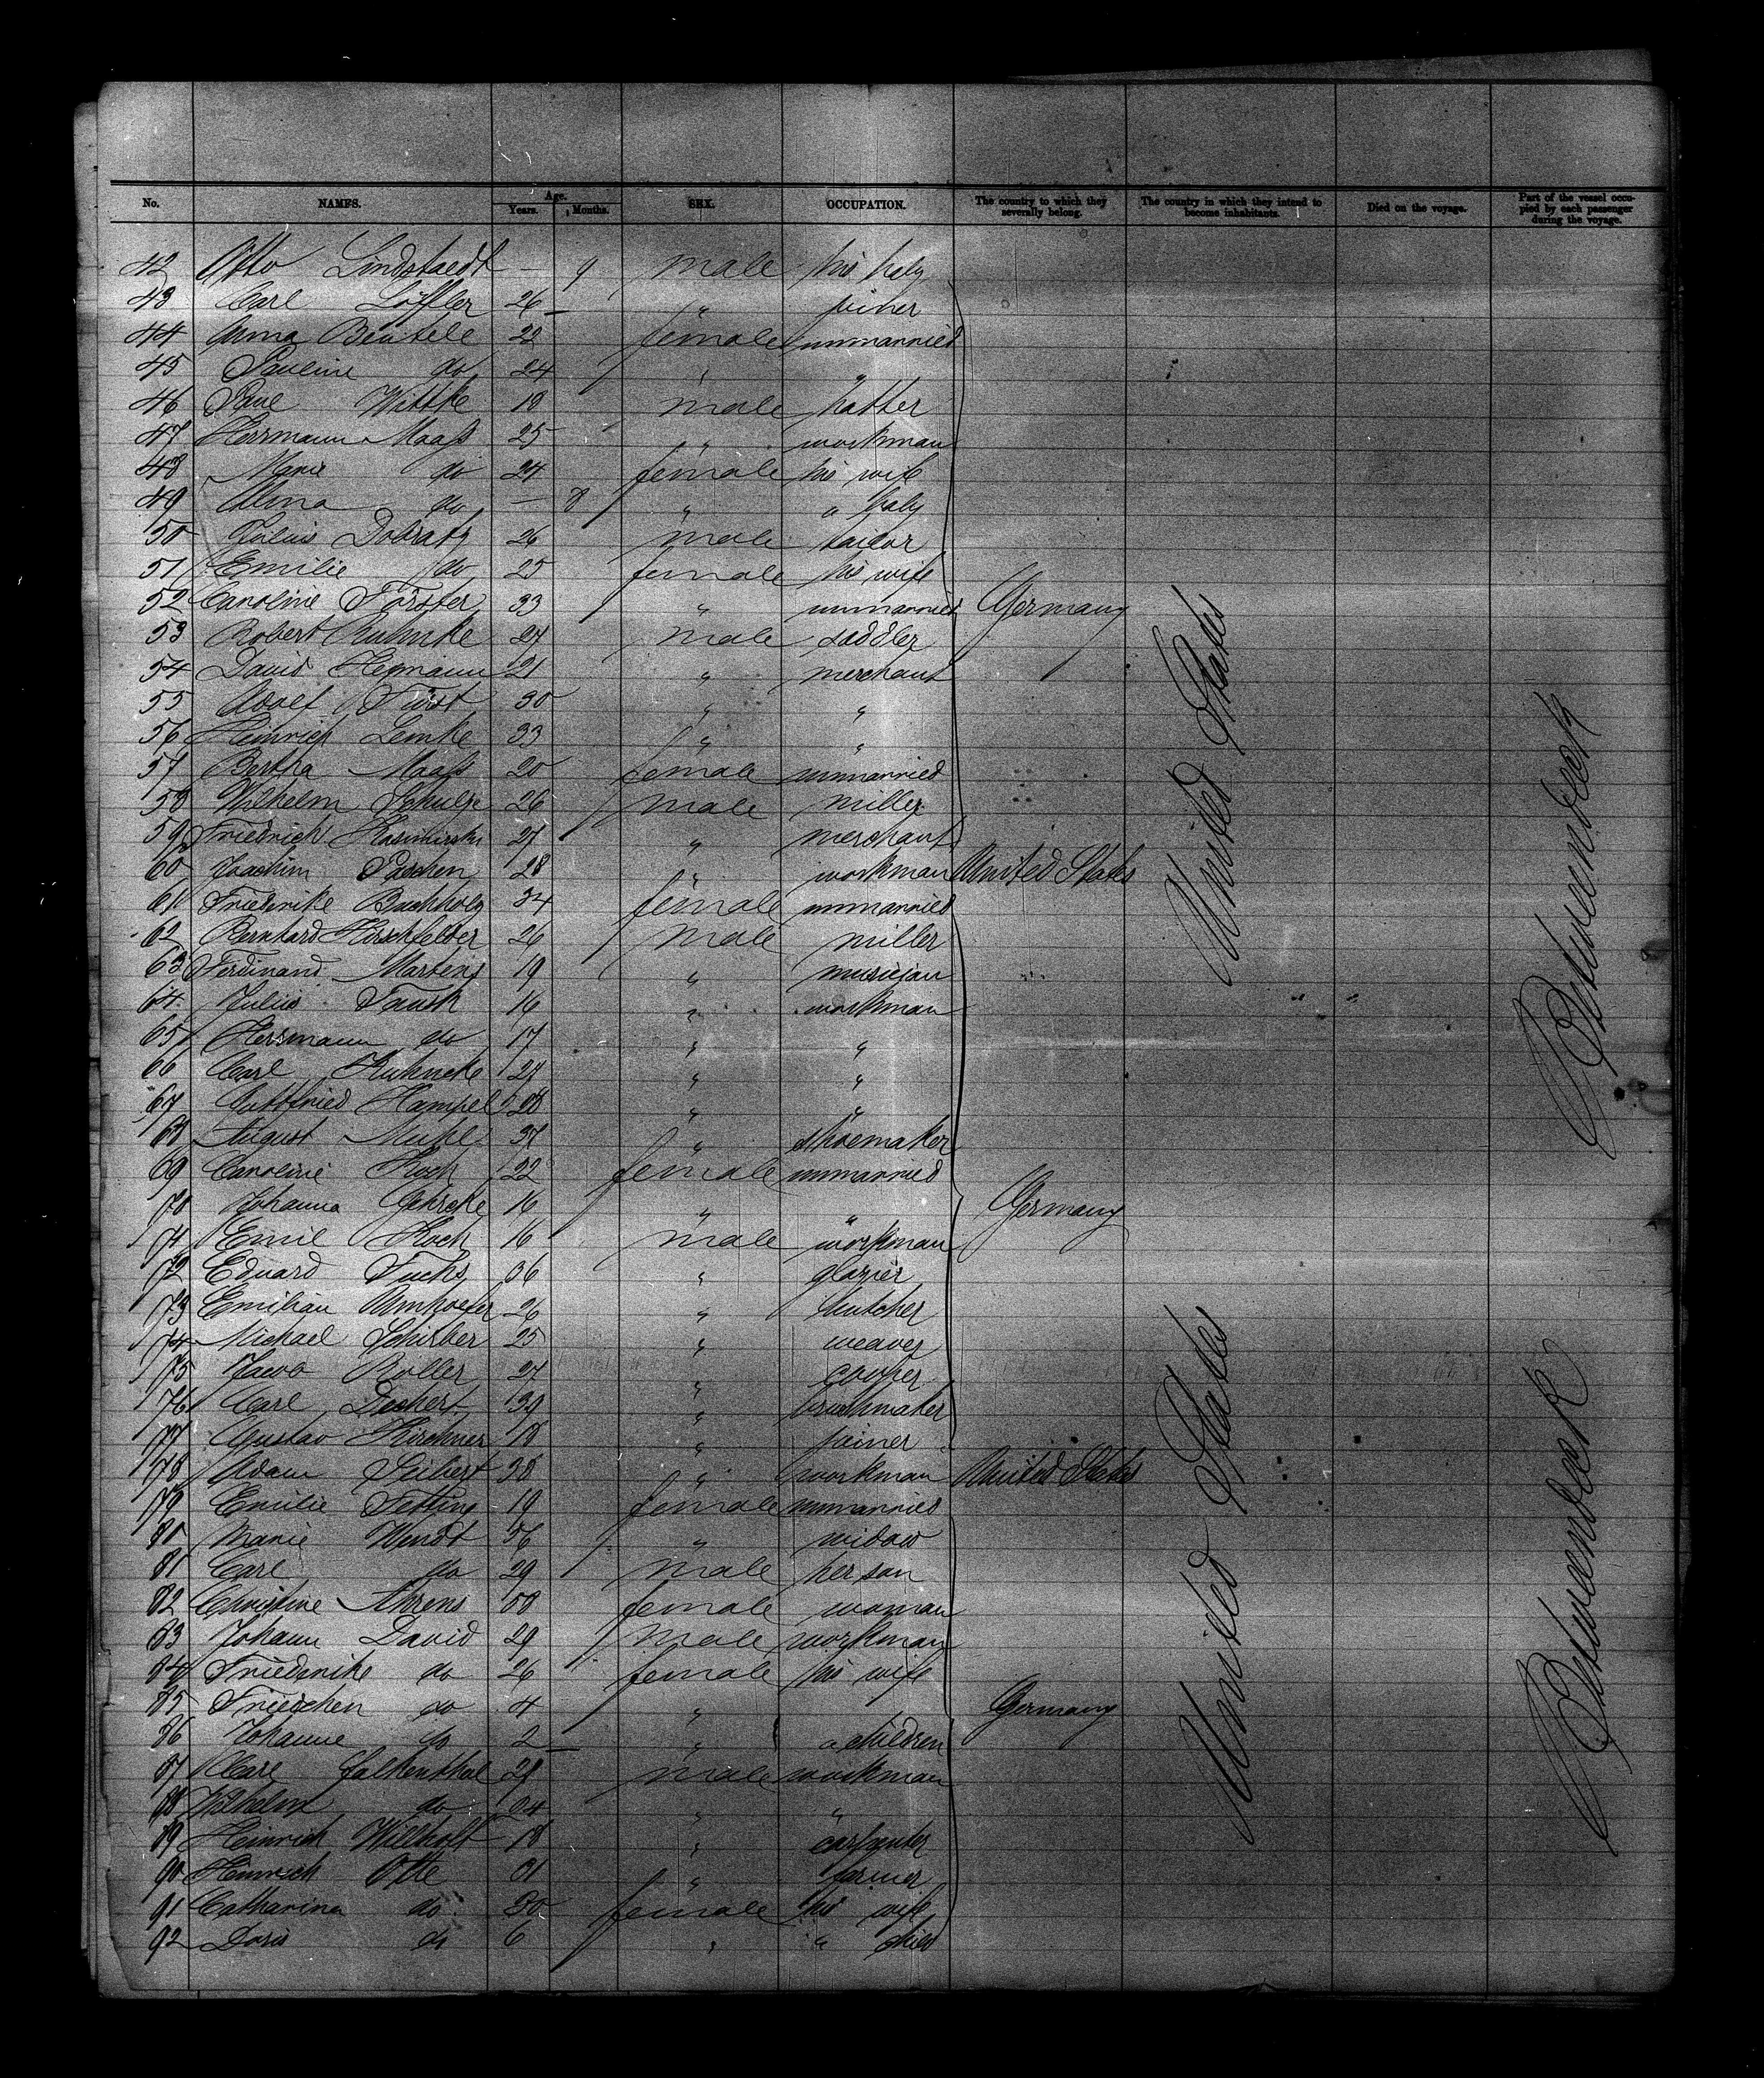 No. NAMES. Age. Years. Months. SEX. OCCUPATION. The country to which they severally belong. The country in which they intend to become inhabitants. Died on the voyage. Part of the vessel occupied by each passenger during the voyage.
42 Otto Lindstaedt — 9 male his baby
43 Carl Löffler 26 — " joiner
44 Anna Beutele 22 female unmarried
45 Pauline do 24 " "
46 Paul Wittke 18 male hatter
47 Herrmann Maaß 25 " workman
48 Marie do 24 female his wife
49 do — 8 " " baby
50 Julius Dobratz 26 male tailor
51 Emilie do 25 female his wife
52 Caroline Förster 33 " unmarried Germany
53 Robert Ruhnke 27 male saddler
54 David Heymann 21 " merchant
55 Adolf Fürst 30 " "
56 Heinrich Lemke 33 " "
57 Bertha Maaß 20 female unmarried
58 Wilhelm Schulze 26 male miller
59 Friedrich Kasimirski 27 " merchant
60 Joachim Paschen 28 " workman United States
61 Friederike Buchholz 34 female unmarried
62 Bernhard Hirschfelder 26 male miller
63 Ferdinand Martens 19 " musician
64 Julius 19 " workman
65 Herrmann do 17 " "
66 Carl Kuhncke 27 " "
67 Gottfried Hampel 28 " "
68 August Muhl 37 " shoemaker
69 Caroline Koch 22 female unmarried
70 Johanna Gehrcke 16 " " Germany
71 Emil Koch 16 male workman
72 Eduard Fuchs 36 " glazier
73 Emilian Amhoefer 26 " butcher
74 Michael Schirber 25 " weaver
75 Jacob Roller 27 " cooper
76 Carl Deckert 39 " brushmaker
77 Gustav Kirchner 18 " joiner
78 Adam Seibert 38 " workman United States
79 Emilie Fetting 19 female unmarried
80 Marie Wendt 56 " widow
81 Carl do 29 male her son
82 Christine Ahrens 58 female woman
83 Johann David 29 male workman
84 Friederike do 26 female his wife
85 Friedchen do 4 " Germany
86 Johanne do 2 — " " children
87 Carl Falkenthal 29 male workman
88 Wilhelm do 24 " "
89 Heinrich Willholt 18 " carpenter
90 Heinrich Otte 31 " farmer
91 Catharina do 30 female his wife
92 Doris do 6 " " child
United States
United States
Betweendeck
Betweendeck